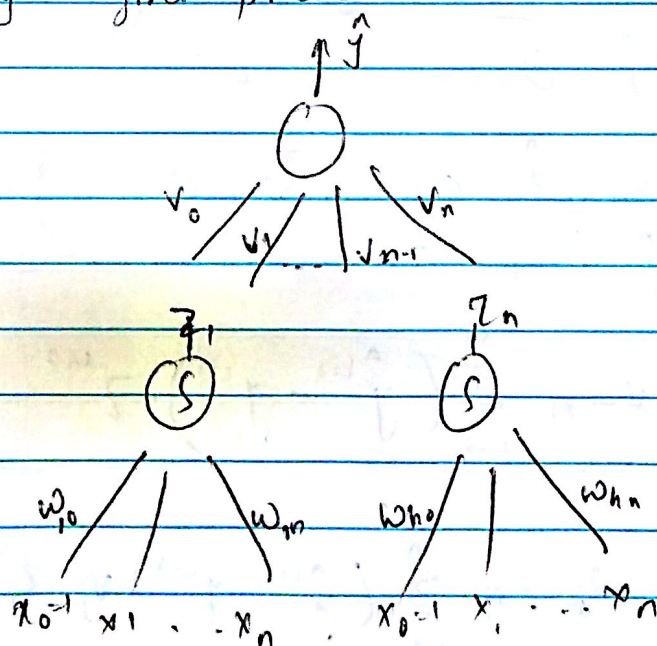 ŷ
v₀ v₁ .... vₙ₋₁ vₙ
z₁ zₙ
S S
w₁₀ w₁ₙ wₕ₀ wₕₙ
x₀=1 x₁ . . xₙ . x₀=1 x₁ . ... xₙ